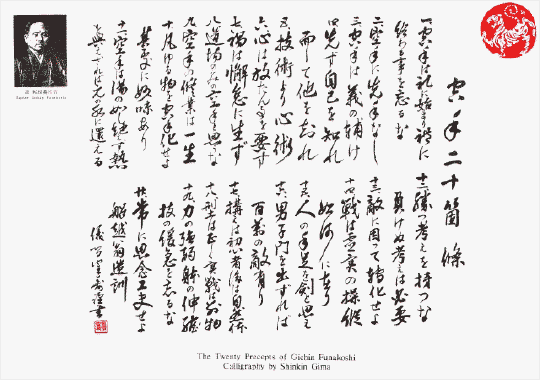 空手二十箇條
一、空手は礼に始まり禮に
終る事を忘るな
二空手に先手なし
三空手は義の輔け
四先づ自己を知れ
而して他を知れ
五技術より心術
六心は放たん事を要す
七禍は懈怠に生ず
八道場のみの空手と思ふな
九空手の修業は一生
十凡ゆる物を空手化せよ
其處に妙味あり
十一空手は湯の如し絶えず熱
を与えざれば元の水に還える
十二勝つ考えを持つな
負けぬ考えは必要
十三敵に因って轉化せよ
十四戦は虚実の操縦
如何に在り
十五人の手足を剣と思え
十六男子門を出ずれば
百万の敵有り
十七構えは初心者後は自然体
十八型は正しく実戦は別物
十九力の強弱躰の伸縮
技の緩急を忘るな
廿常に思念工夫せよ
船越翁遺訓
儀間真謹書
The Twenty Precepts of Gichin Funakoshi
Calligraphy by Shinkin Gima